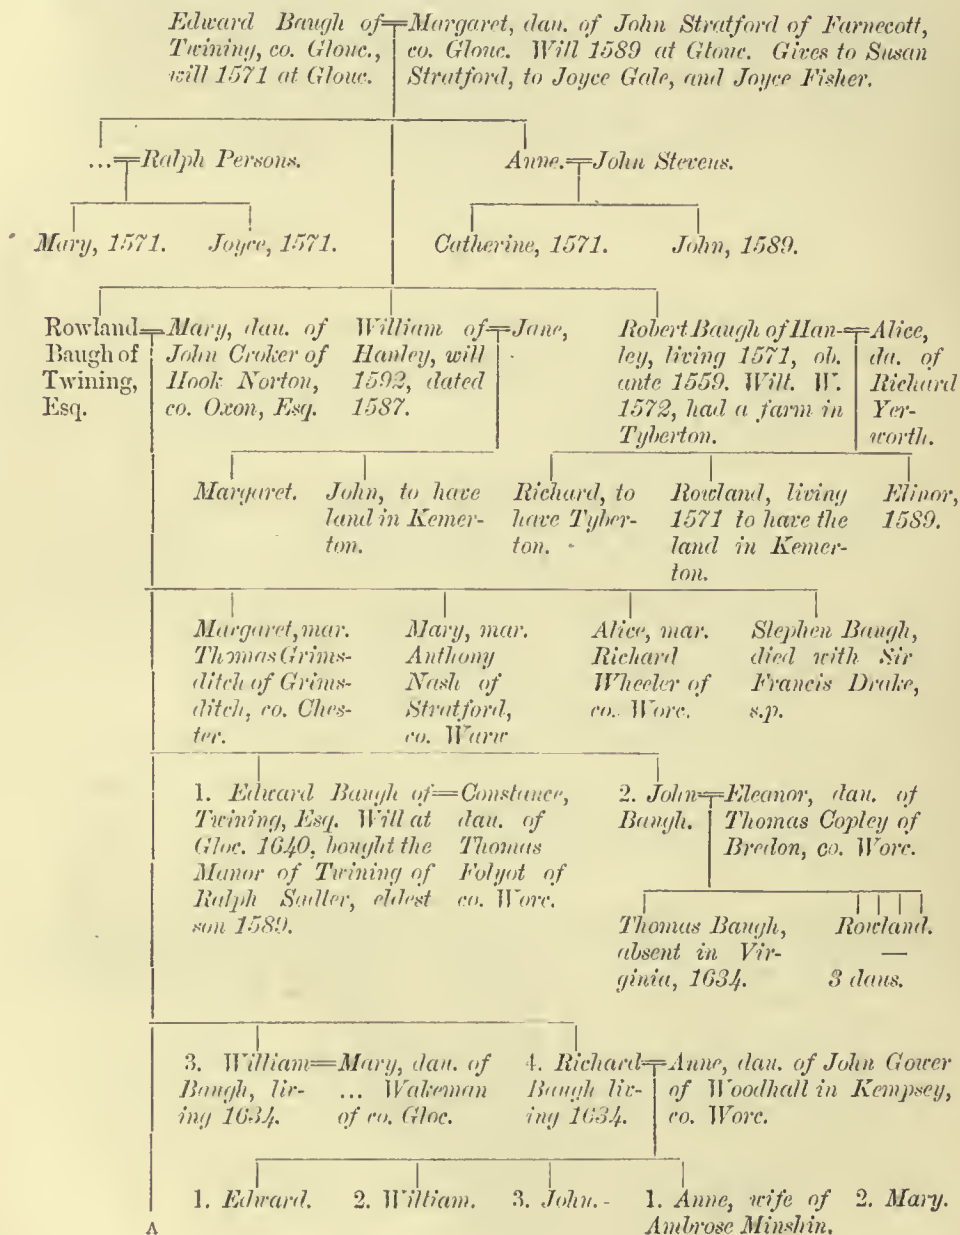 Edward Baugh of Twining, co. Glouc., will 1571 at Glouc.
Margaret, dau. of John Stratford of Farnecott, co. Glouc. Will 1589 at Glouc. Gives to Susan Stratford, to Joyce Gale, and Joyce Fisher.
...=Ralph Persons.
Anne.=John Stevens.
Mary, 1571.
Joyce, 1571.
Catherine, 1571.
John, 1589.
Rowland
Baugh of
Twining,
Esq.
Mary, dau. of
John Croker of
Hook Norton,
co. Oxon, Esq.
William of
Hanley, will
1592, dated
1587.
Jane,
Robert Baugh of Han-
ley, living 1571, ob.
ante 1559. Wilt. W.
1572, had a farm in
Tyberton.
Alice,
da. of
Richard
Yer-
worth.
Margaret.
John, to have
land in Kemer-
ton.
Richard, to
have Tyber-
ton.
Rowland, living
1571 to have the
land in Kemer-
ton.
Elinor,
1589.
Margaret, mar.
Thomas Grims-
ditch of Grims-
ditch, co. Ches-
ter.
Mary, mar.
Anthony
Nash of
Stratford,
co. Warw
Alice, mar.
Richard
Wheeler of
co. Worc.
Stephen Baugh,
died with Sir
Francis Drake,
s.p.
1. Edward Baugh of
Twining, Esq. Will at
Gloc. 1640, bought the
Manor of Twining of
Ralph Sadler, eldest
son 1589.
Constance,
dau. of
Thomas
Folyot of
co. Worc.
2. John
Baugh.
Eleanor, dau. of
Thomas Copley of
Bredon, co. Worc.
Thomas Baugh,
absent in Vir-
ginia, 1634.
Rowland.
—
3 daus.
3. William
Baugh, liv-
ing 1634.
Mary, dau. of
... Wakeman
of co. Gloc.
4. Richard
Baugh liv-
ing 1634.
Anne, dau. of John Gower
of Woodhall in Kempsey,
co. Worc.
1. Edward.
2. William.
3. John.-
1. Anne, wife of
Ambrose Minshin.
2. Mary.
A